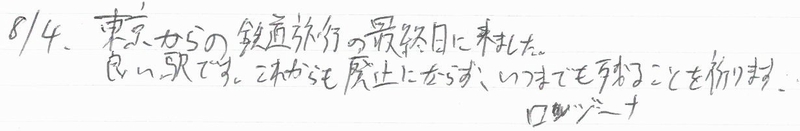 8/4、東京からの鉄道旅行の最終日に来ました。
良い駅です。これからも廃止にならず、いつまでも残ることを祈ります。
ロッジーナ